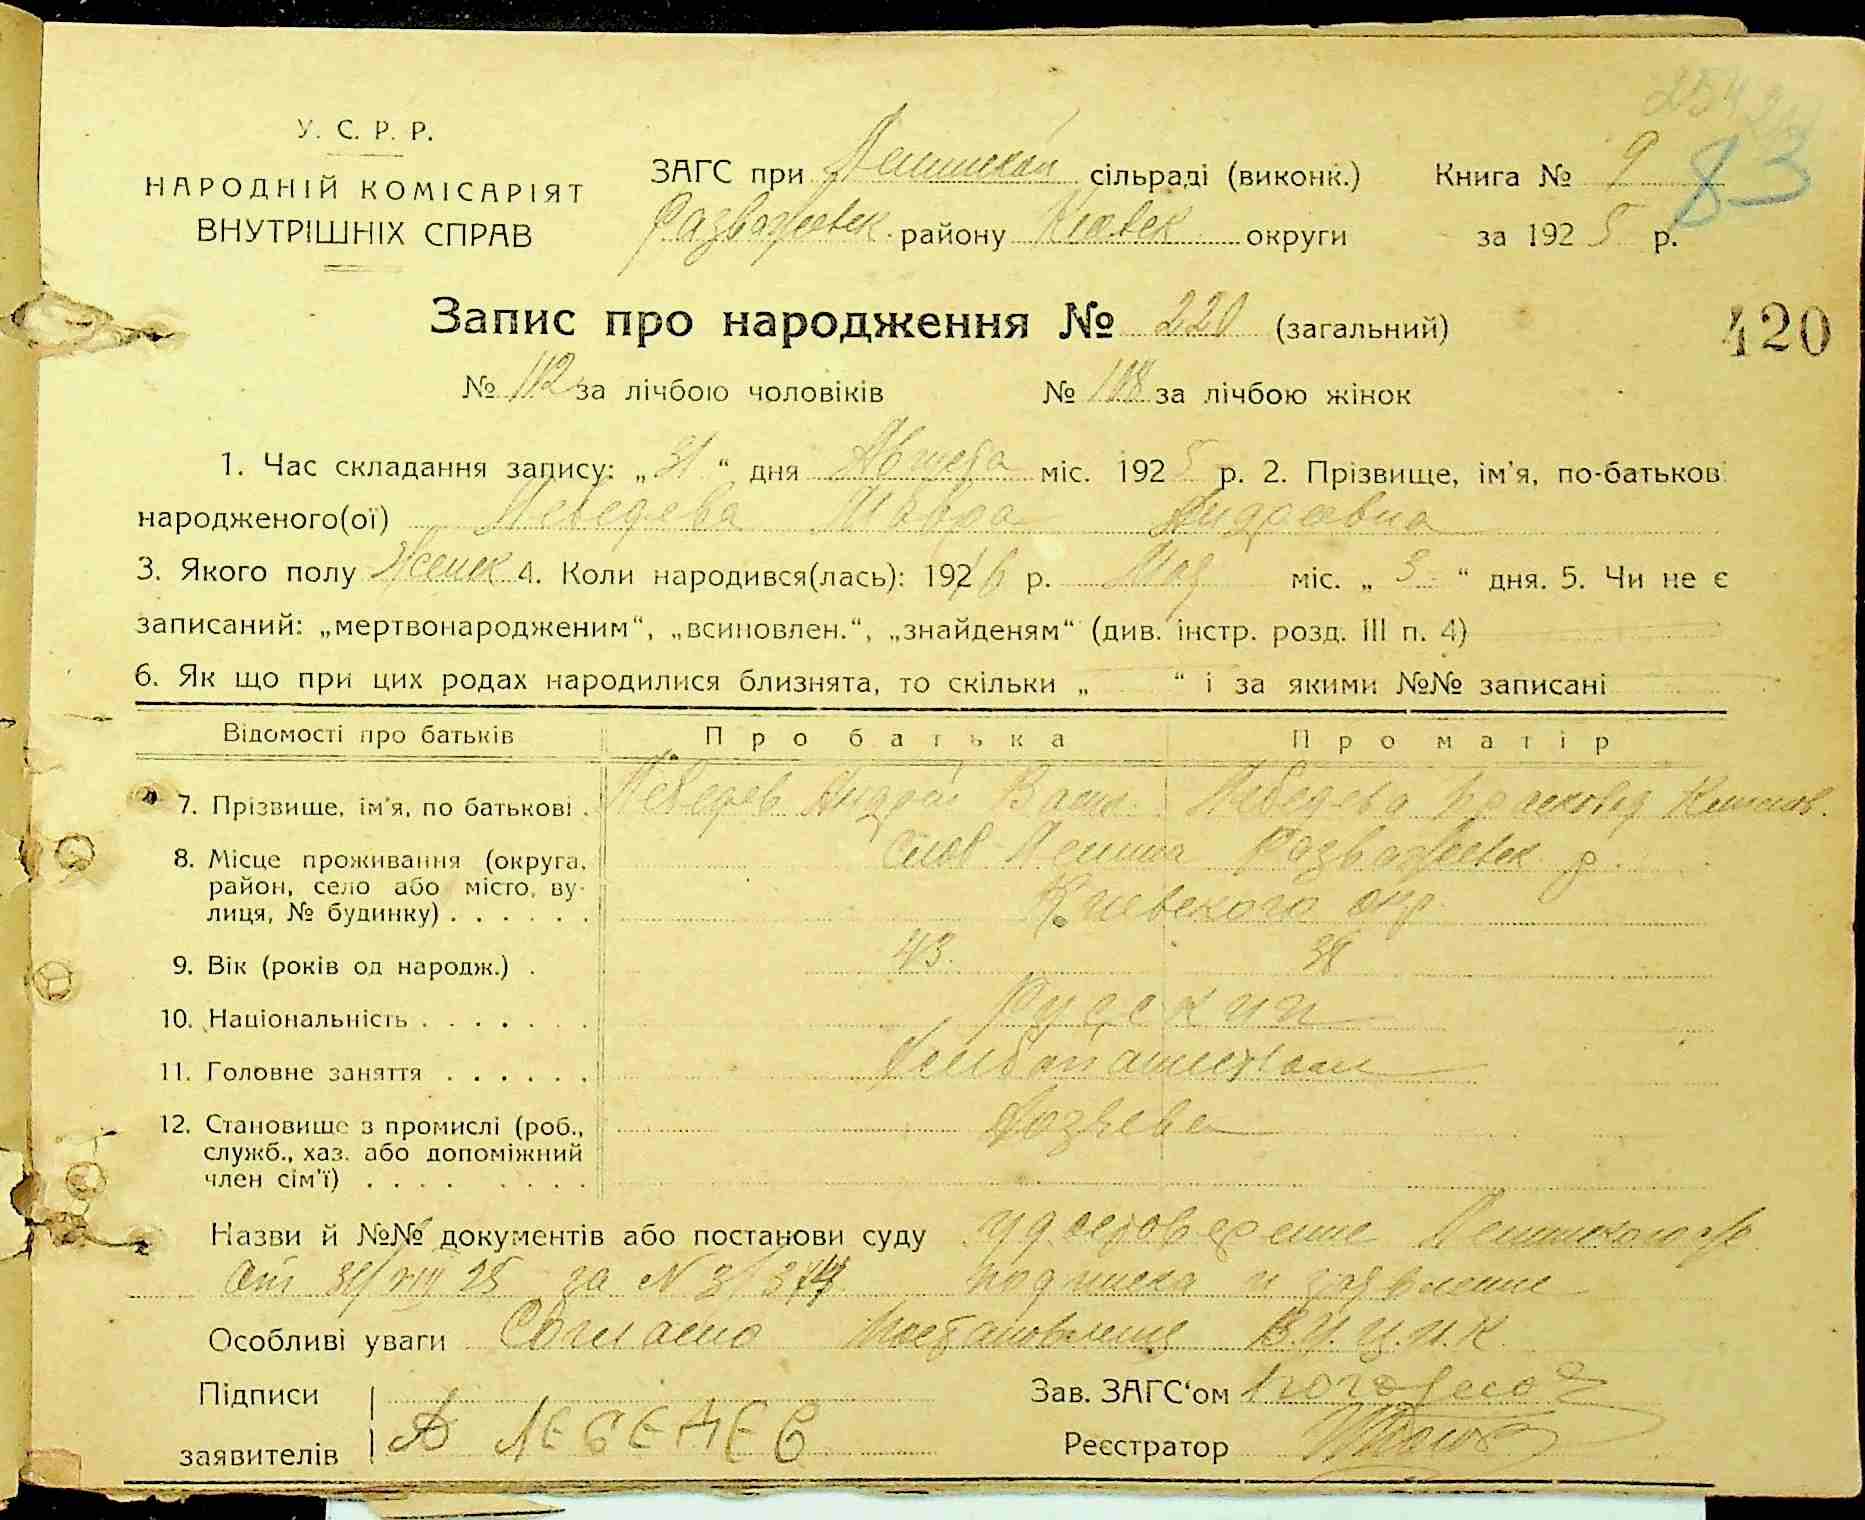 83
У. С. Р. Р.
НАРОДНІЙ КОМІСАРІЯТ
ВНУТРІШНІХ СПРАВ
ЗАГС при Ленинской сільраді (виконк.) Книга № 9
Розважевск. району Киевск округи за 1925 р.
Запис про народження № 220 (загальний)
420
№ 112 за лічбою чоловіків № 108 за лічбою жінок
1. Час складання запису: „31“ дня Августа міс. 1925 р. 2. Прізвище, ім'я, по-батьков
народженого(ої) Лебедева Андреевна
3. Якого полу Женск 4. Коли народився(лась): 192 р. Мая міс. „3“ дня. 5. Чи не є
записаний: „мертвонародженим“, „всиновлен.“, „знайденям“ (див. інстр. розд. III п. 4)
6. Як що при цих родах народилися близнята, то скільки „ “ і за якими №№ записані
Відомості про батьків Про батька Про матір
7. Прізвище, ім'я, по батькові . Лебедев Андрей Васил. Лебедева
8. Місце проживання (округа, район, село або місто, вулиця, № будинку) . . . . . . Ленина Розважевск р.
Киевского окр.
9. Вік (років од народж.) . 43. 38
10. Національність . . . . . . . Русский
11. Головне заняття . . . . . .
12. Становище з промислі (роб.,
служб., хаз. або допоміжний
член сім'ї) . . . . . . . .
Назви й №№ документів або постанови суду удостоверение Ленинского с/р.
от 31/VIII 25 за N 3/374 подписка и заявление
Особливі уваги Согласно Постановления В.У.Ц.И.К.
Підписи
заявителів А ЛЕБЕДЕВ
Зав. ЗАГС'ом
Реєстратор